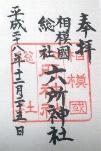 奉拝
相模國
総社
六所神社
平成二八年十二月二十五日
相模國
総社